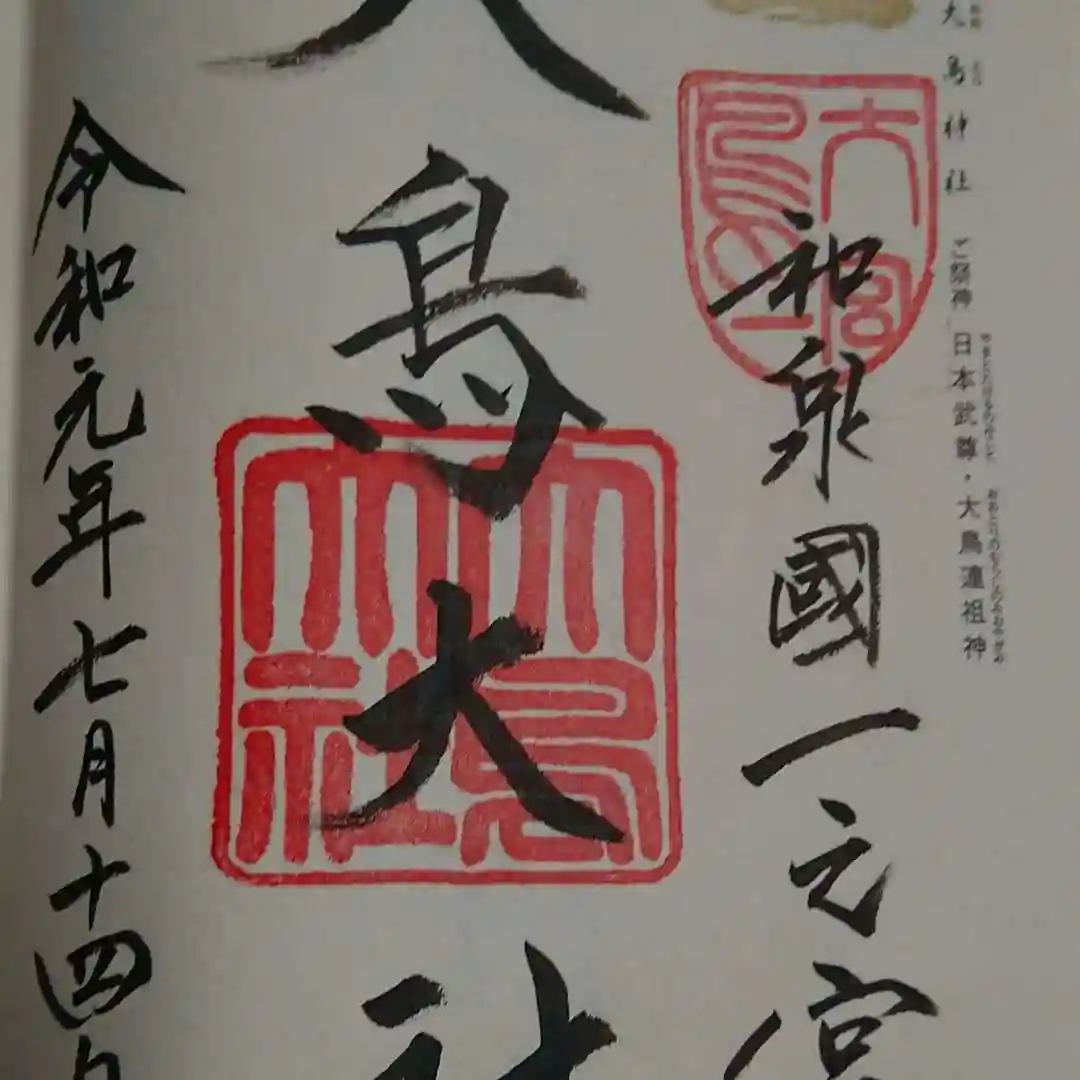 大鳥神社 ご祭神 日本武尊・大鳥連祖神
和泉國一之宮
大鳥大社
令和元年七月十四日
大鳥大社